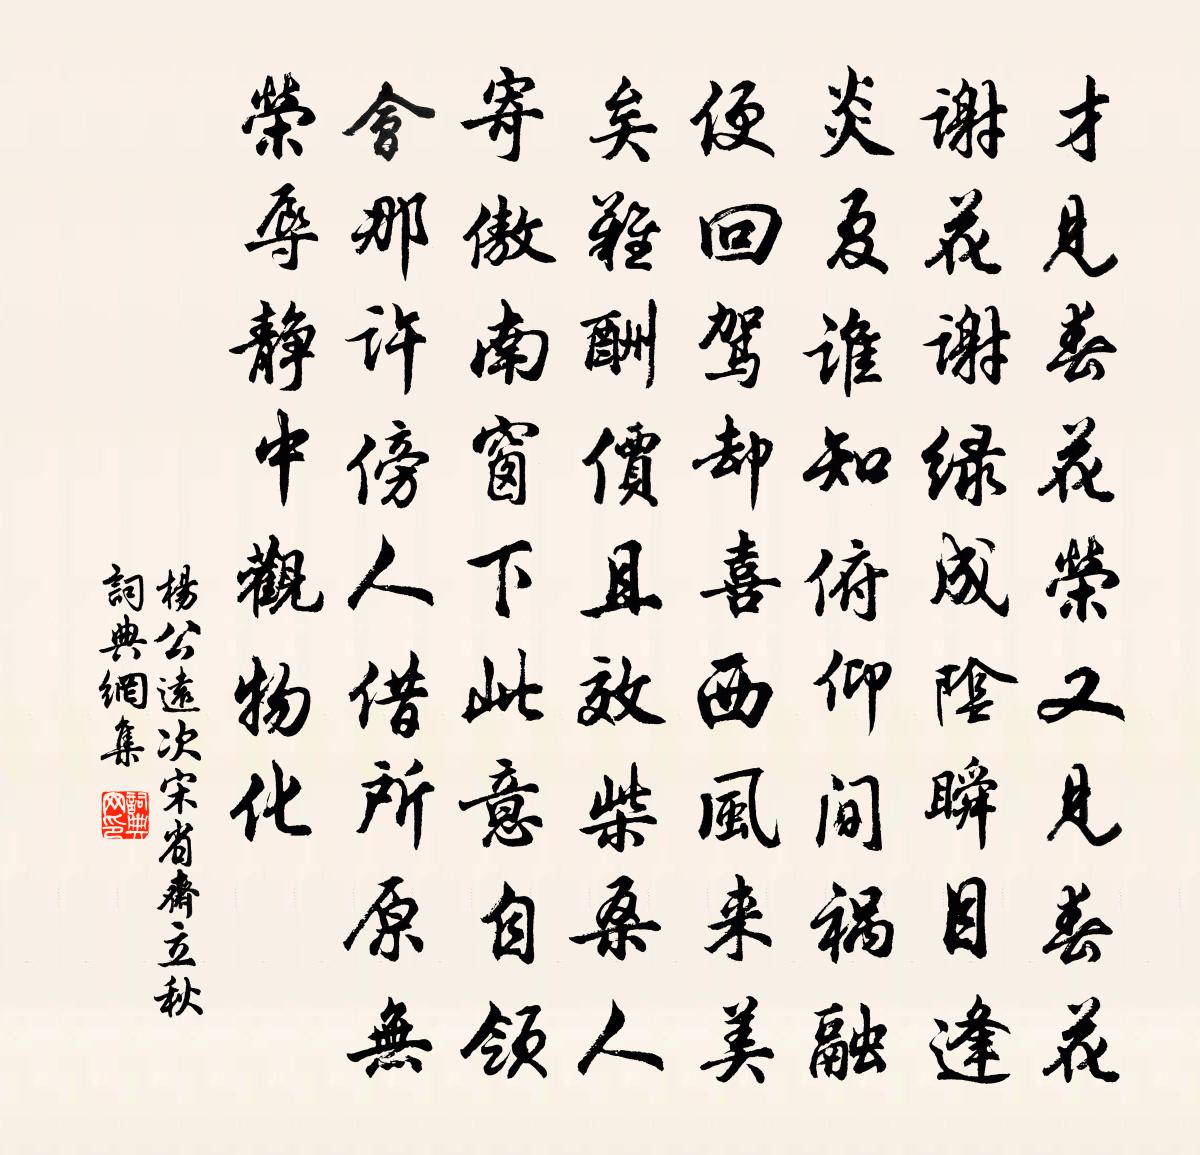 才見春花榮又見春花
謝花謝緑成陰瞬目逢
炎夏誰知俯仰間禍融
便回駕却喜西風来美
矣難酬價且效柴桑人
寄傲南窗下此意自領
會那許傍人借所原無
榮辱静中觀物化
楊公遠次宋省齋立秋
詞典網集
詞典网印